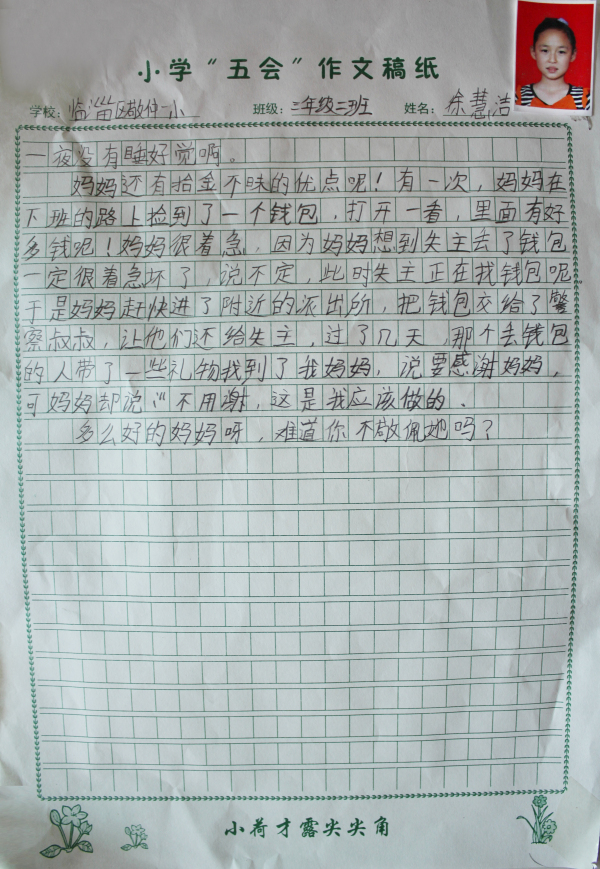 小学“五会”作文稿纸
学校：临淄区敬仲一小 班级：三年级二班 姓名：徐慧洁
一夜没有睡好觉啊。
妈妈还有拾金不昧的优点呢！有一次，妈妈在
下班的路上捡到了一个钱包，打开一看，里面有好
多钱呢！妈妈很着急，因为妈妈想到失主丢了钱包
一定很着急坏了，说不定，此时失主正在找钱包呢
于是妈妈赶快进了附近的派出所，把钱包交给了警
察叔叔，让他们还给失主。过了几天，那个丢钱包
的人带了一些礼物找到了我妈妈，说要感谢妈妈，
可妈妈却说“不用谢，这是我应该做的．
多么好的妈妈呀，难道你不敬佩她吗？
小荷才露尖尖角